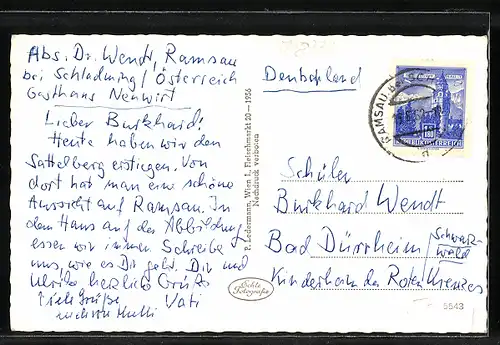 Abs. Dr. Wendt, Ramsau
bei Schladming / Österreich
Gasthaus Neuwirt
Lieber Burkhard!
Heute haben wir den
Sattelberg erstiegen. Von
dort hat man eine schöne
Aussicht auf Ramsau. In
dem Haus auf der Abbildung
essen wir immer. Schreibe
uns, wie es Dir geht. Dir und
Ulrike herzliche Grüße
Vati
Viele Grüße
auch von Mutti
P. Ledermann, Wien I., Fleischmarkt 20 — 1956
Nachdruck verboten
Echte
Fotografie
Deutschland
RAMSAU
REPUBLIK ÖSTERREICH
Schüler
Burkhard Wendt
Bad Dürrheim / Schwarz-
wald
Kinderheim des Roten Kreuzes
5543